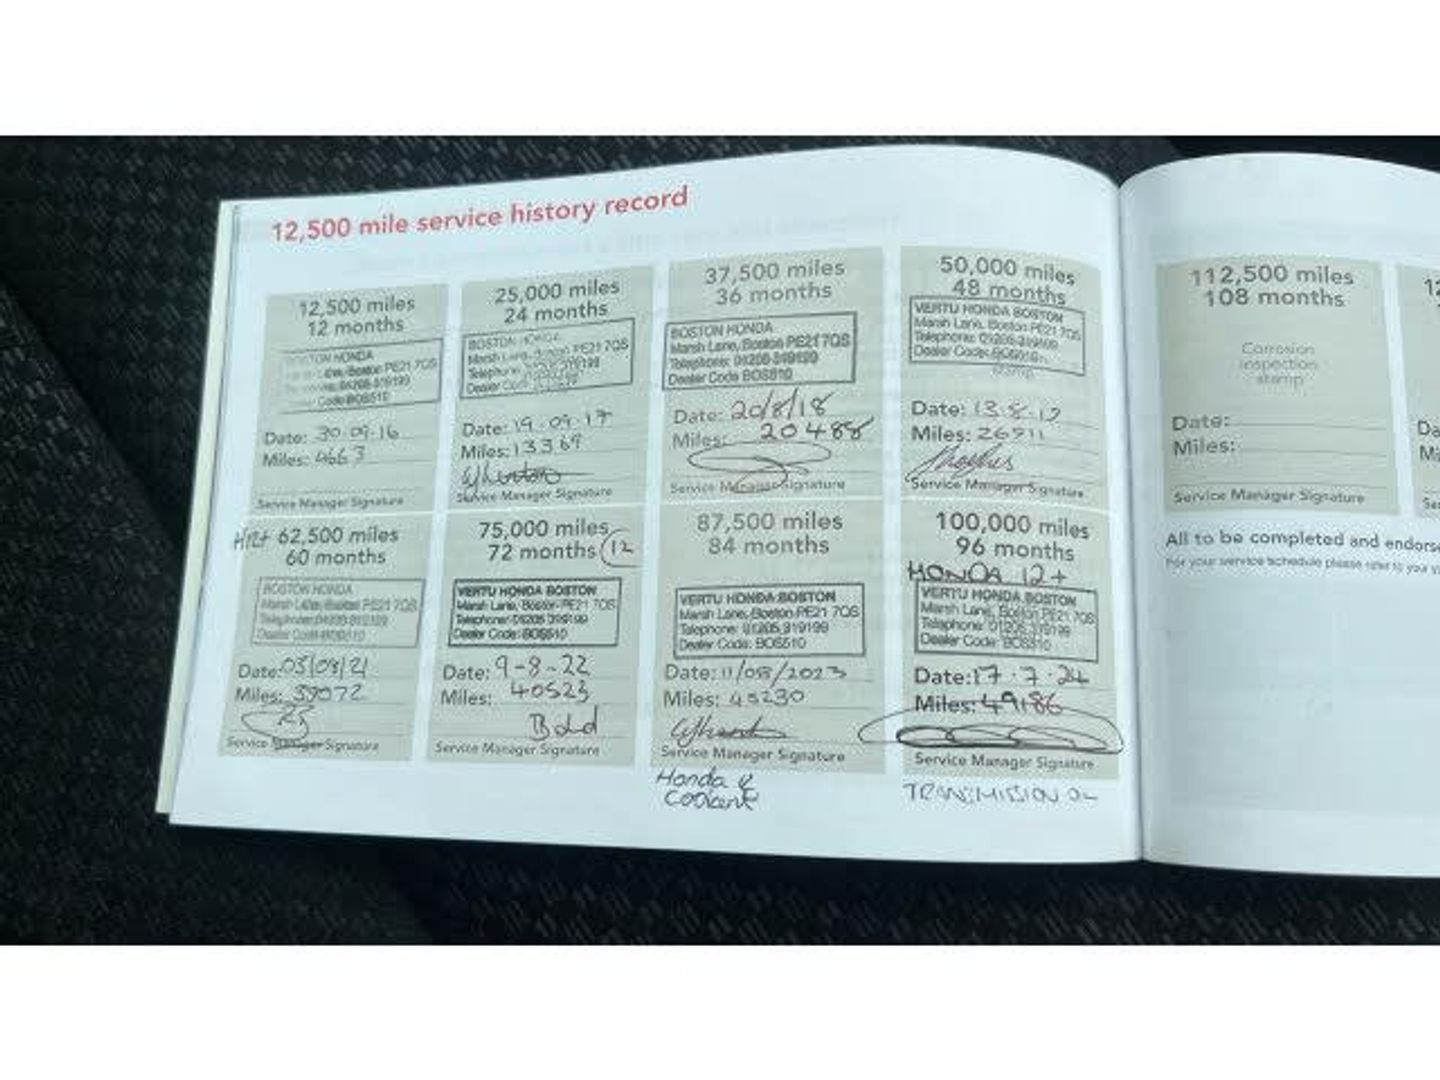 12,500 mile service history record
12,500 miles
12 months
BOSTON HONDA
Boston PE21 7QS
01205 319199
Code BOS510
Date: 30.09.16
Miles: 4663
Service Manager Signature
25,000 miles
24 months
BOSTON HONDA
Marsh Lane, Boston PE21 7QS
Telephone: 01205 319199
Dealer Code: BOS510
Date: 19.09.17
Miles: 13369
Service Manager Signature
37,500 miles
36 months
BOSTON HONDA
Marsh Lane, Boston PE21 7QS
Telephone: 01205 319199
Dealer Code BOS510
Date: 20/8/18
Miles: 20488
Service Manager Signature
50,000 miles
48 months
VERTU HONDA BOSTON
Marsh Lane, Boston PE21 7QS
Telephone: 01205 319199
Dealer Code: BOS510
stamp
Date: 13.8.19
Miles: 26911
Service Manager Signature
62,500 miles
60 months
BOSTON HONDA
Marsh Lane, Boston PE21 7QS
Telephone: 01205 319199
Dealer Code BOS510
Date: 03/09/21
Miles: 39072
Service Manager Signature
75,000 miles
72 months 12
VERTU HONDA BOSTON
Marsh Lane, Boston PE21 7QS
Telephone: 01205 319199
Dealer Code: BOS510
Date: 9-8-22
Miles: 40523
Service Manager Signature
87,500 miles
84 months
VERTU HONDA BOSTON
Marsh Lane, Boston PE21 7QS
Telephone: 01205 319199
Dealer Code: BOS510
Date: 11/08/2023
Miles: 45230
Service Manager Signature
Honda &
Coolant
100,000 miles
96 months
HONDA 12+
VERTU HONDA BOSTON
Marsh Lane, Boston PE21 7QS
Telephone: 01205 319199
Dealer Code: BOS510
Date: 17.7.24
Miles: 49186
Service Manager Signature
TRANSMISSION
112,500 miles
108 months
Corrosion
inspection
stamp
Date:
Miles:
Service Manager Signature
All to be completed and
For your service schedule please refer to your